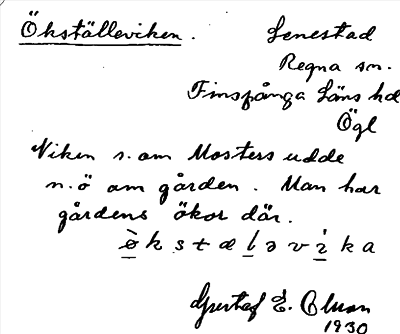 Ökställeviken. Lenestad
Regna sn.
Finspånga Läns hd
Ögl
Viken s. om Mosters udde
n.ö om gården. Man har
gårdens ökor där.
ø̀kstælǝvìka
Gustaf E.
1930